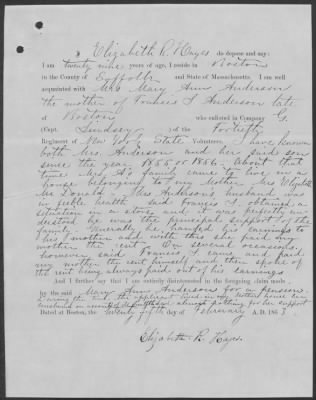 I, Elizabeth R. Hayes, do depose and say:
I am twenty nine years of age, I reside in Boston
in the County of Suffolk and State of Massachusetts. I am well
acquainted with Mrs Mary Ann Anderson
the mother of Francis I Anderson late
of Boston who enlisted in Company G
(Capt. Lindsey) of the Fortieth
Regiment of New York State Volunteers, I have known
both Mrs. Anderson and her said son
since the year 1855 or 1856. About that
time Mrs A's family came to live in a
house belonging to my Mother, Mrs Elizabeth
Mc Donald. Mrs Anderson's husband was
in feeble health said Francis I. obtained a
situation in a store and it was perfectly un-
derstood he was the principal support of the
family. Generally he handed his earnings to
his mother and with this she paid my
mother the rent. On several occasions,
however said Francis I came and paid
my mother the rent himself and then spoke of
the rent being always paid out of his earnings
And I further say that I am entirely disinterested in the foregoing claim made
by the said Mary Ann Anderson for a pension
during the time the applicant lived in my mothers house her
husband in nothing for her support
Dated at Boston, the twenty fifth day of February A.D. 1863
Elizabeth R. Hayes